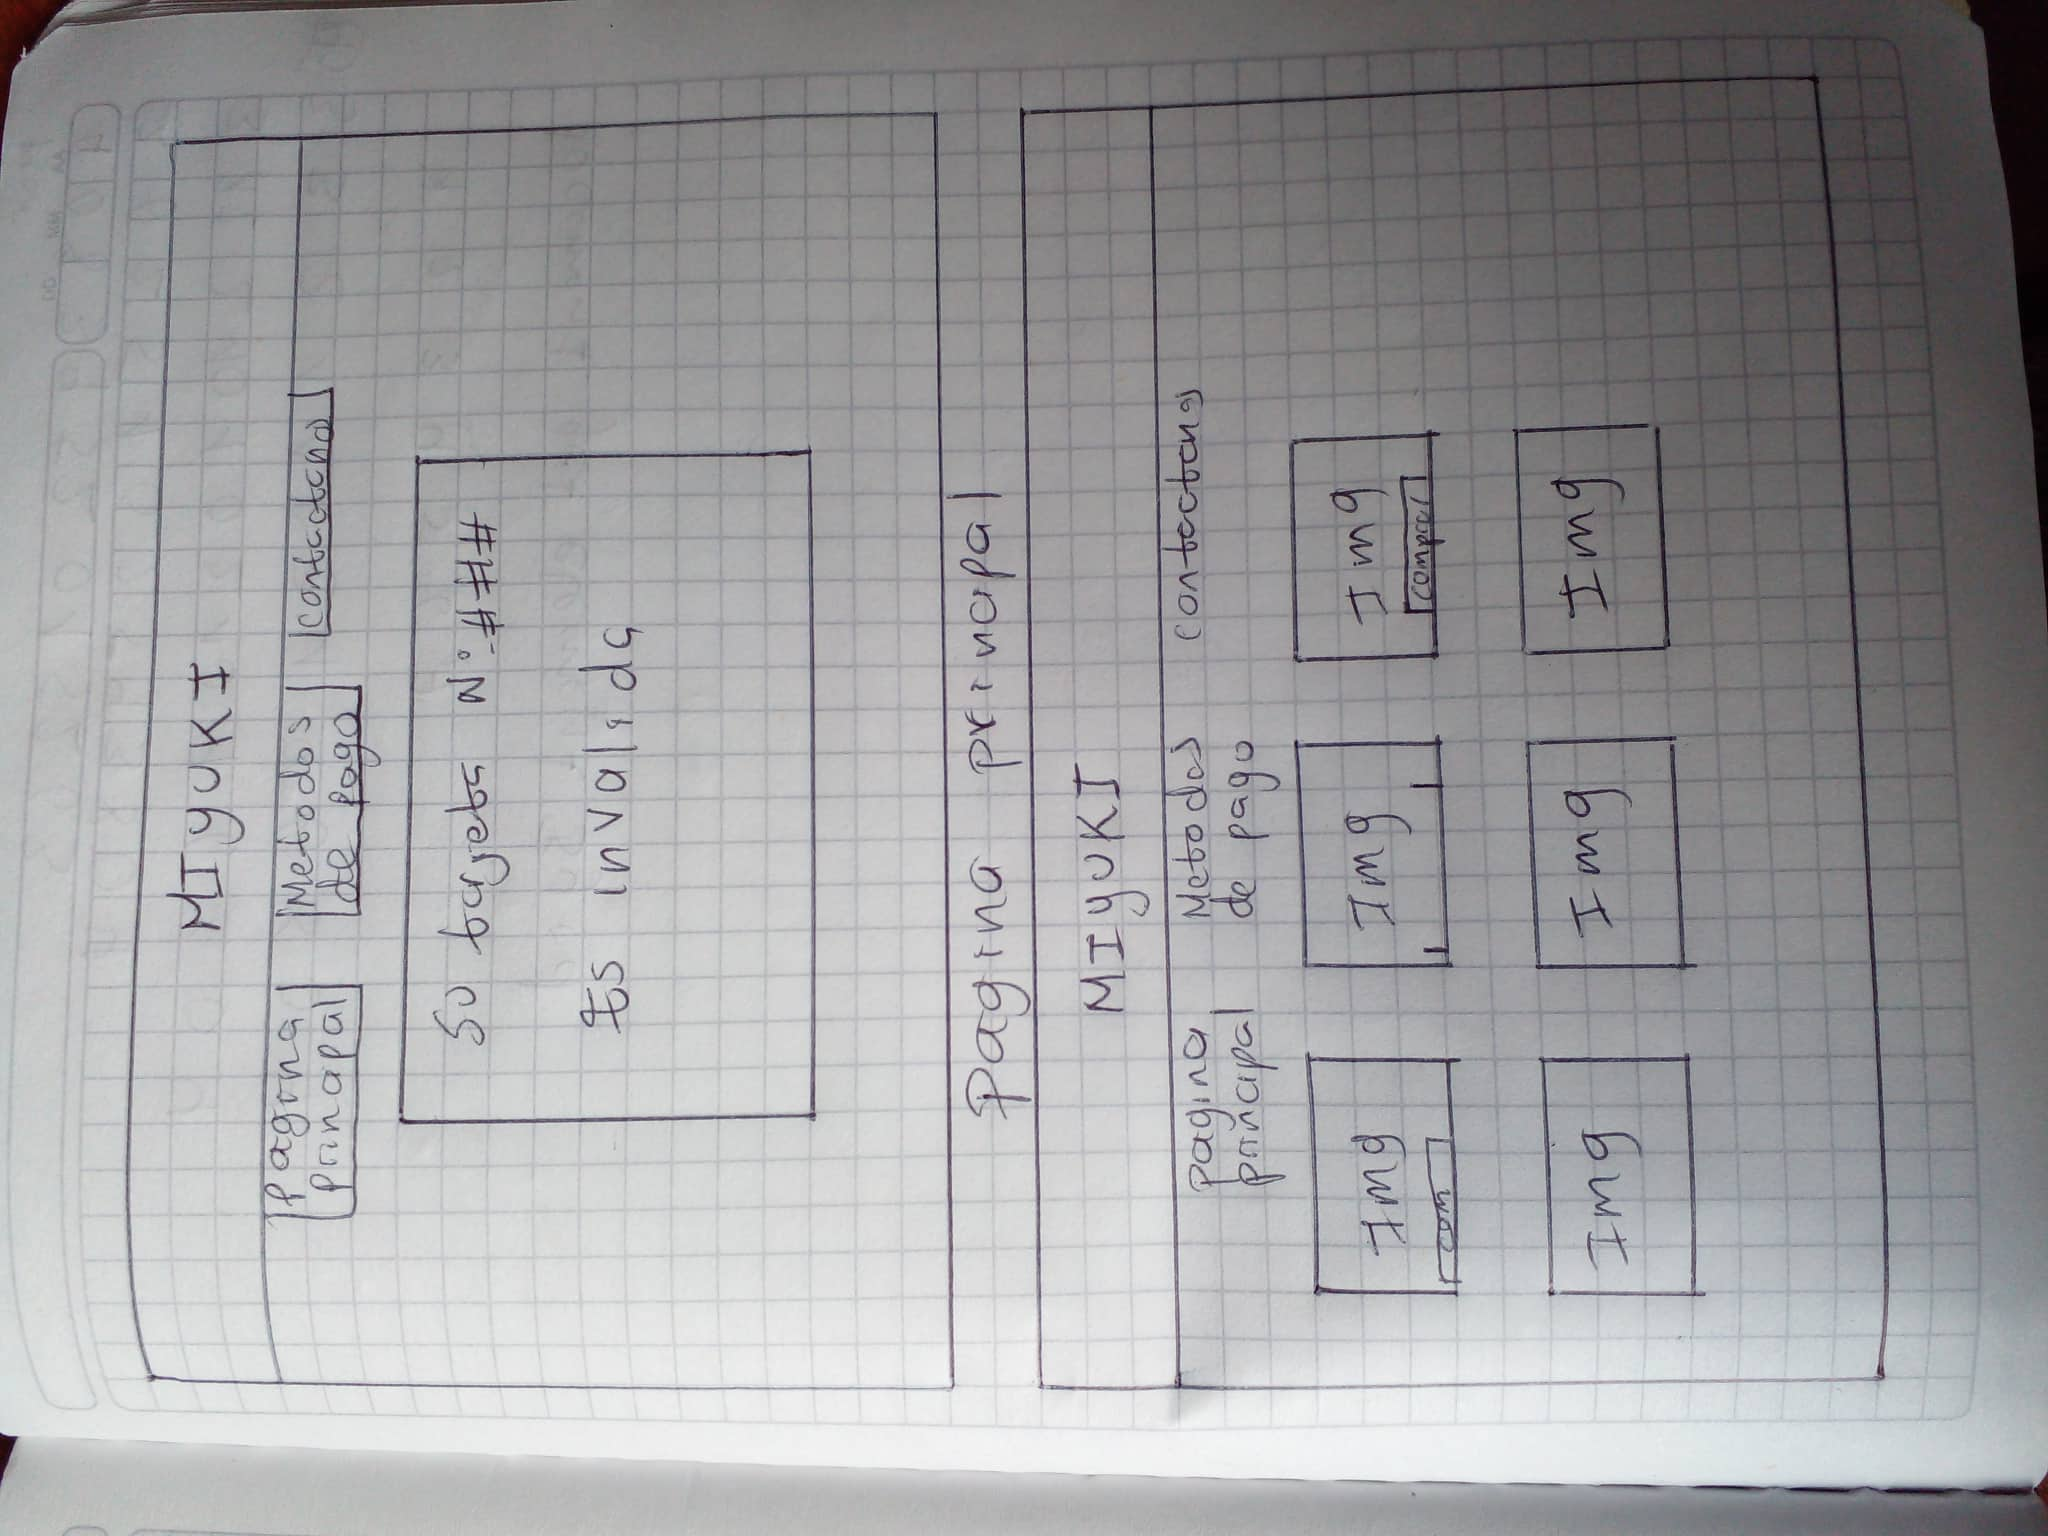 MIYUKI
Pagina
principal
Metodos
de pago
Contactano
Su tarjeta N° ###
Es invalida
Pagina principal
MIYUKI
Pagina
principal
Metodos
de pago
Contactanos
Img
com
Img
Img
Compral
Img
Img
Img